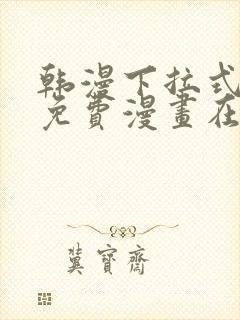 韩漫下拉式
免費漫畫在
冀寶齋